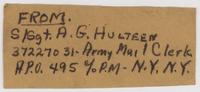 FROM.
S/Sgt. A. G. HULTEEN
37227031- Army Mail Clerk
A.P.O. 495 %P.M- N.Y, N.Y.